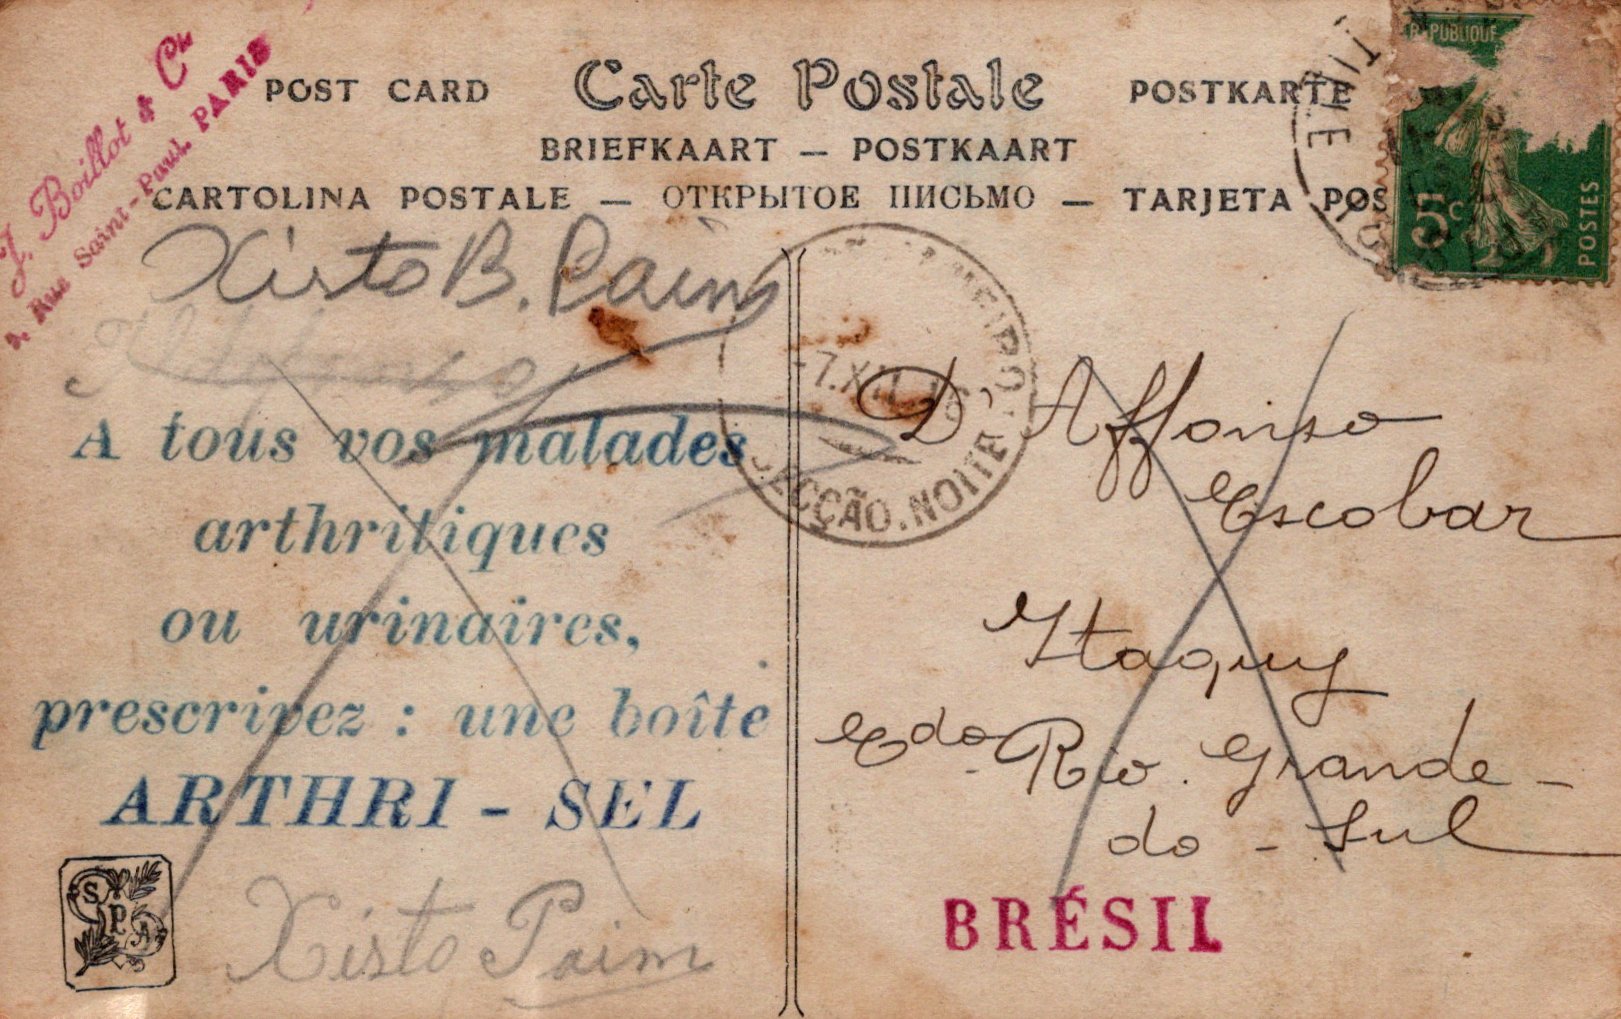 J. Boillot & Cie
Rue Saint-Paul PARIS
POST CARD Carte Postale POSTKARTE
BRIEFKAART — POSTKAART
CARTOLINA POSTALE — ОТКРЫТОЕ ПИСЬМО — TARJETA POS
RÉPUBLIQUE
5c
POSTES
Xisto B. Paim
7.XII
SECÇÃO.NOITE
A tous vos malades
arthritiques
ou urinaires,
prescrivez : une boîte
ARTHRI - SEL
SPA
Xisto Paim
Dr Affonso
Escobar
Itaquy
Edo Rio Grande -
do - Sul
BRÉSIL